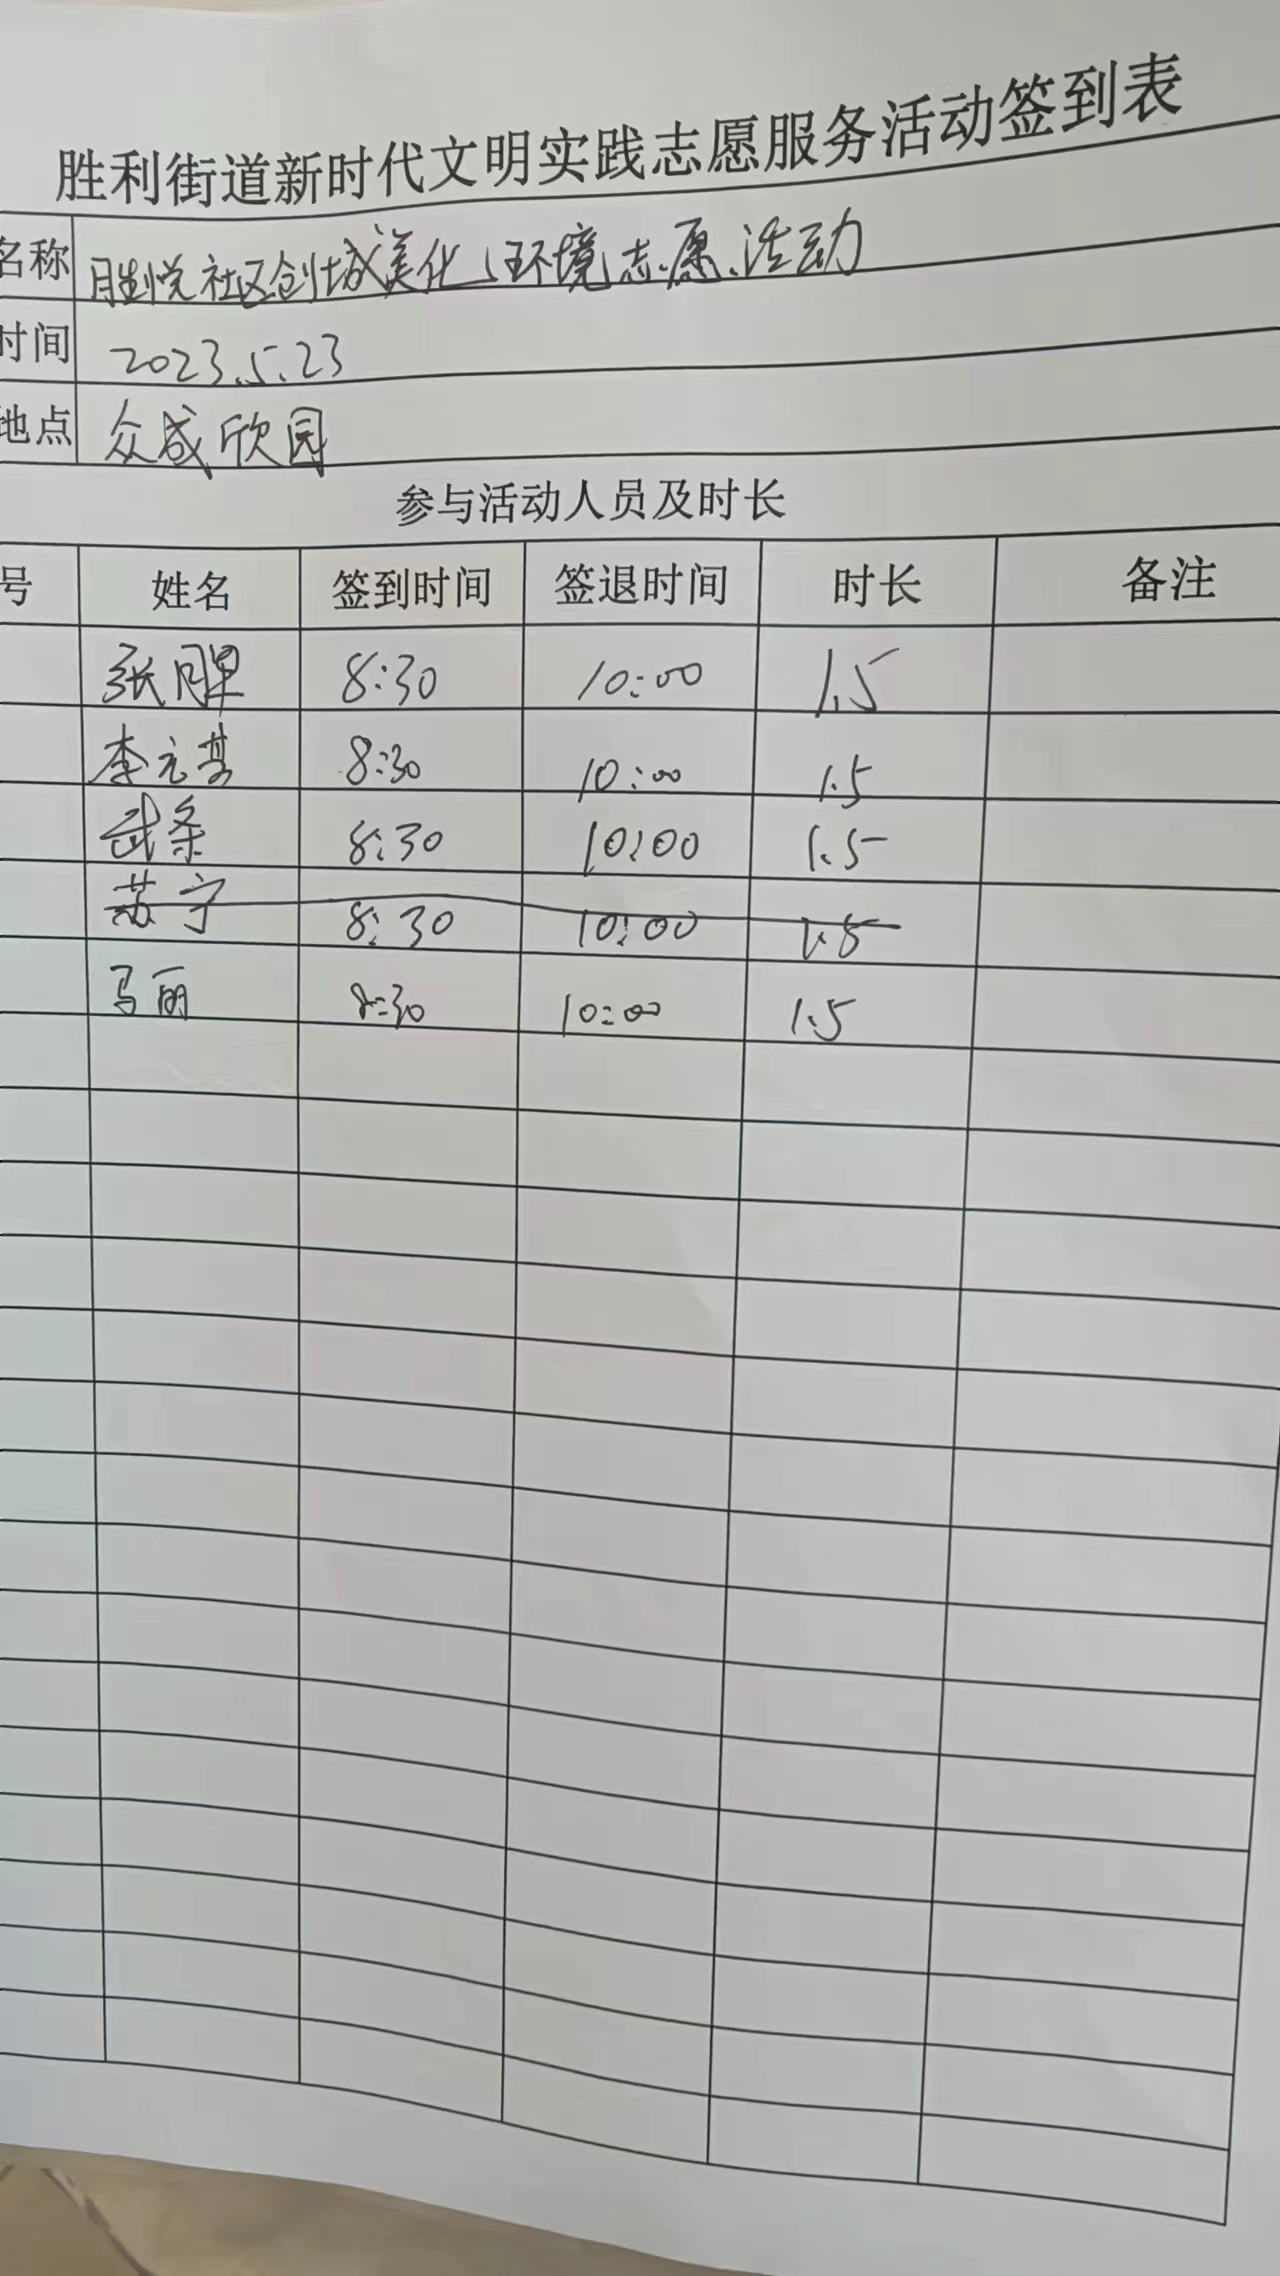 胜利街道新时代文明实践志愿服务活动签到表
名称 胜悦社区创城美化环境志愿活动
时间 2023.5.23
地点 众成欣园
参与活动人员及时长
号 姓名 签到时间 签退时间 时长 备注
张 8:30 10:00 1.5
李元基 8:30 10:00 1.5
武条 8:30 10:00 1.5
苏宁 8:30 10:00 1.5
马丽 8:30 10:00 1.5